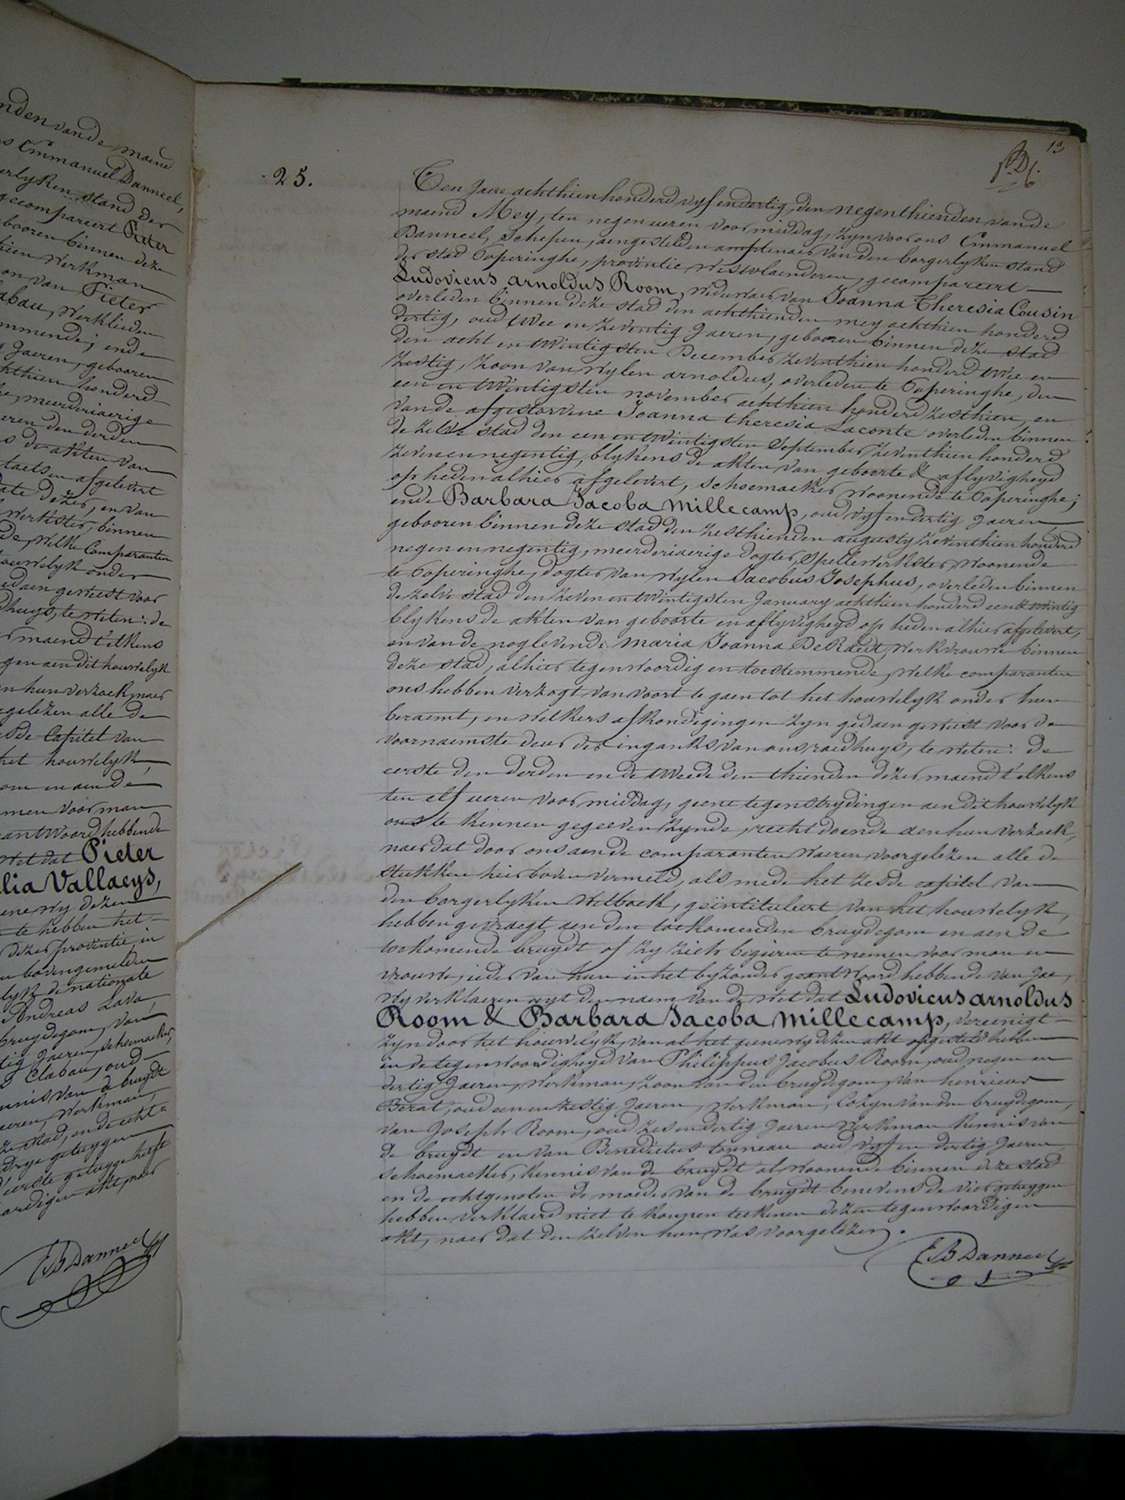 nden van de maend
s Emmanuel Danneel,
erlyken stand der
gecompareert Pieter
gebooren binnen deze
hien Werkman
on van Pieter
labau, werklieden
emmende; ende
Jaeren, gebooren
hthien honderd
e, meerderiaerige
eren den derden
s de akten van
laets en afgelevert
ate dezer, en van
werkster, binnen
de, welke Comparanten
ouwelyk onder
edaen geweest voor
dhuys, te weten: de
maend t'elkens
gen aen dit houwelyk
n hun verzoek, naer
rgelezen alle de
esde Capitel van
het houwelyk,
om en aen de
men voor man
antwoord hebbende
wet dat Pieter
lia Vallaeys,
ene wy dezen
te hebben het
dezer provintie, in
bovengemelden
lyk de nationale
Andreas Lava,
bruydegom, van
tig Jaeren, schoemaeker,
s Clabau, oud
nnis van de bruydt
aeren, Werkman,
ze stad, en de echt-
drye getuygen
d'eerste getuyge heeft
ordigen akt, naer
E B Danneel
13
25.
Ten Jaere achthien honderd vyf en dertig, den negenthienden van de
maend Mey, ten negen ueren voormiddag, zyn voor ons Emmanuel
Danneel, Schepen, aengestelden amptenaer van den borgerlyken stand
der stad Poperinghe, provintie Westvlaenderen, gecompareert
Ludovicus Arnoldus Room, Weduwaer van Joanna Theresia Cousin
overleden binnen deze stad den achthienden mey achthien honderd
dertig, oud twee en zeventig Jaeren, gebooren binnen deze stad
den acht en twintigsten December zeventhien honderd twee en
zestig, zoon van wylen arnoldus, overleden te Poperinghe, den
een en twintigsten november achthien honderd zesthien, en
van de afgestorvene Joanna theresia Laconte overleden binnen
de zelve stad den een en twintigsten September zeventhien honderd
zeven en negentig, blykens de akten van geboorte & aflyvigheyd
op heden alhier afgelevert, schoemaeker, woonende te Poperinghe;
ende Barbara Jacoba Millecamp, oud vyf en dertig Jaeren,
gebooren binnen deze stad den zesthienden augusty zeventhien honderd
negen en negentig, meerderiaerige dogter, Spellewerkster, woonende
te Poperinghe, dogter van wylen Jacobus Josephus, overleden binnen
de zelve stad den zeven en twintigsten January achthien honderd een & twintig
blykens de akten van geboorte en aflyvigheyd op heden alhier afgelevert,
en van de noglevende Maria Joanna DeRaedt, werkvrouwe binnen
deze stad, alhier tegenwoordig en toestemmende, welke comparanten
ons hebben verzogt van voort te gaen tot het houwelyk onder hun
beraemt, en welkers afkondigingen zyn gedaen geweest voor de
voornaemste deur der inganks van ons raedhuys, te weten: de
eerste den derden en de tweede den thienden dezer maend t'elkens
ten elf ueren voormiddag, geene tegenstrydingen aen dit houwelyk
ons te kennen gegeeven zynde, recht doende aen hun verzoek,
naer dat door ons aen de comparanten waeren voorgelezen alle de
stukken hier boven vermeld, als mede het zesde capitel van
den borgerlyken Wetboek, geïntituleert van het houwelyk,
hebben gevraegt aen den toekomenden bruydegom en aen de
toekomende bruydt of zy zich begieren te nemen voor man en
vrouwe, ieder van hun in het byzonder geantwoord hebbende van Jae,
wy verklaeren uyt den naem van de wet dat Ludovicus arnoldus
Room & Barbara Jacoba Millecamp, vereenigt
zyn door het houwelyk, van al het geene wy dezen akt opgestelt hebben
in de tegenwoordigheyd van Philippus Jacobus Room, oud negen en
dertig Jaeren, werkman, zoon van den bruydegom, van henricus
Berat, oud een en zestig Jaeren, Werkman, Cozyn van den bruydegom,
van Joseph Room, oud zes en dertig Jaeren Werkman kennis van
de bruydt en van Benedictus tonneau oud vyf en dertig Jaeren
schoemaeker, kennis van de bruydt al woonende binnen deze stad
en de echtgenoten de moeder van de bruydt benevens de vier getuygen
hebben verklaerd niet te konnen teekenen dezen tegenwoordigen
akt, naer dat den zelven hun was voorgelezen.
E B Danneel